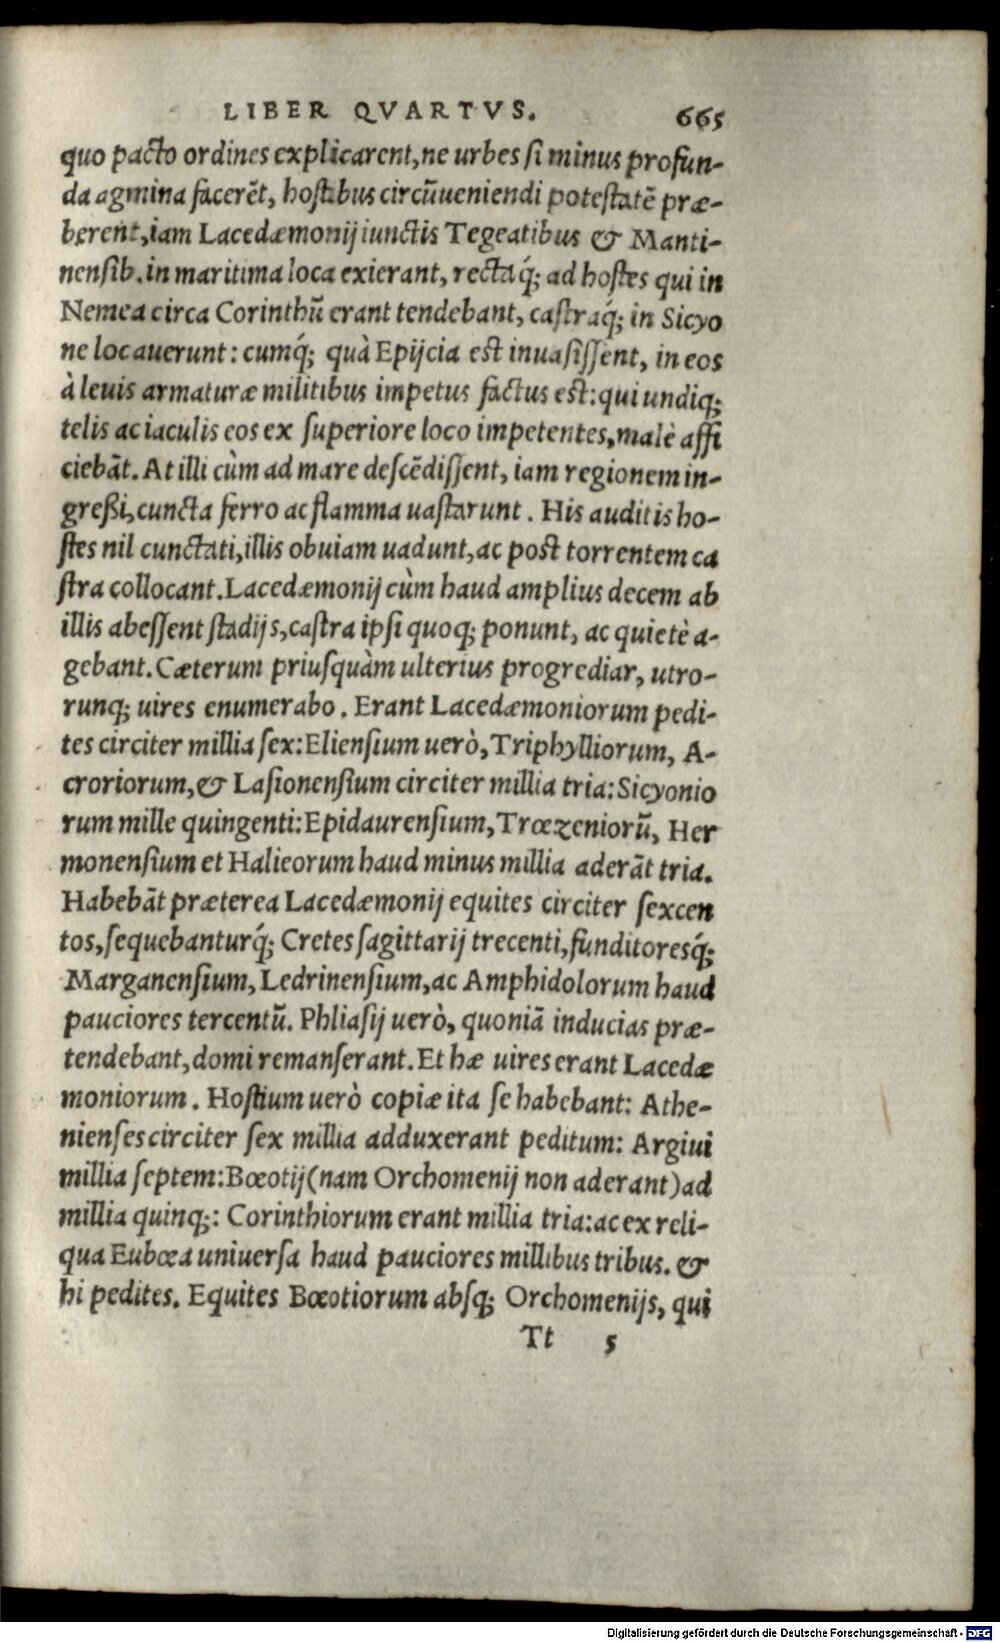 LIBER QVARTVS. 665
quo pacto ordines explicarent, ne urbes si minus profun-
da agmina facerēt, hostibus circūueniendi potestatē præ-
berent, iam Lacedæmonij iunctis Tegeatibus & Manti-
nensib. in maritima loca exierant, rectaq́; ad hostes qui in
Nemea circa Corinthū erant tendebant, castraq́; in Sicyo
ne locauerunt: cumq́; quà Epijcia est inuasissent, in eos
à leuis armaturæ militibus impetus factus est: qui undiq;
telis ac iaculis eos ex superiore loco impetentes, malè affi
ciebāt. At illi cùm ad mare descēdissent, iam regionem in-
greßi, cuncta ferro ac flamma uastarunt. His auditis ho-
stes nil cunctati, illis obuiam uadunt, ac post torrentem ca
stra collocant. Lacedæmonij cùm haud amplius decem ab
illis abessent stadijs, castra ipsi quoq; ponunt, ac quietè a-
gebant. Cæterum priusquàm ulterius progrediar, utro-
runq; uires enumerabo. Erant Lacedæmoniorum pedi-
tes circiter millia sex: Eliensium uerò, Triphylliorum, A-
croriorum, & Lasionensium circiter millia tria: Sicyonio
rum mille quingenti: Epidaurensium, Trœzeniorū, Her
monensium et Halieorum haud minus millia aderāt tria.
Habebāt præterea Lacedæmonij equites circiter sexcen
tos, sequebanturq́; Cretes sagittarij trecenti, funditoresq́;
Marganensium, Ledrinensium, ac Amphidolorum haud
pauciores tercentū. Phliasij uerò, quoniā inducias præ-
tendebant, domi remanserant. Et hæ uires erant Lacedæ
moniorum. Hostium uerò copiæ ita se habebant: Athe-
nienses circiter sex millia adduxerant peditum: Argiui
millia septem: Bœotij (nam Orchomenij non aderant) ad
millia quinq;: Corinthiorum erant millia tria: ac ex reli-
qua Eubœa uniuersa haud pauciores millibus tribus. &
hi pedites. Equites Bœotiorum absq; Orchomenijs, qui
Tt 5
Digitalisierung gefördert durch die Deutsche Forschungsgemeinschaft - DFG